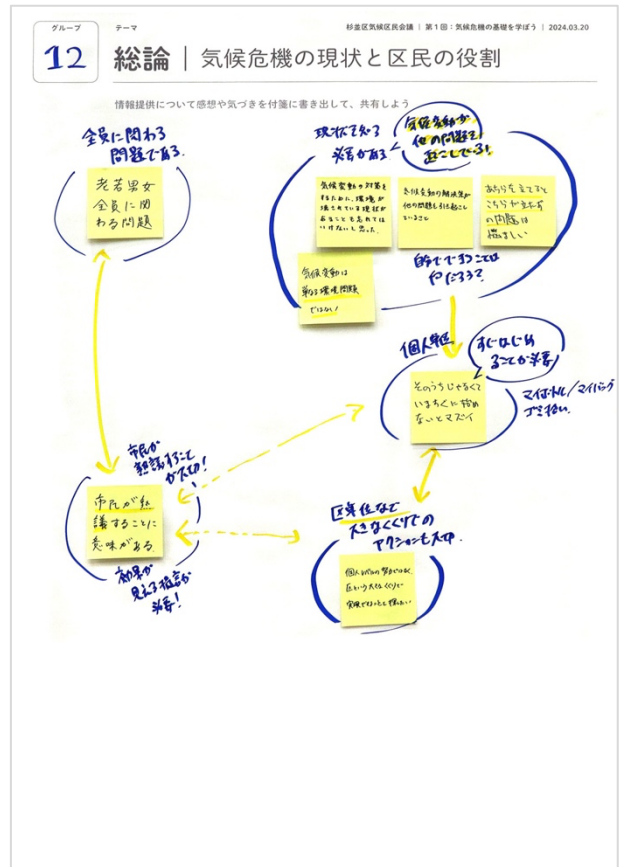 グループ
12
テーマ
杉並区気候区民会議 | 第1回:気候危機の基礎を学ぼう | 2024.03.20
総論 | 気候危機の現状と区民の役割
情報提供について感想や気づきを付箋に書き出して、共有しよう
全員に関わる
問題である.
老若男女
全員に関
わる問題
現状を知る
必要がある
気候変動が
他の問題も
起こしている!
気候変動の対策を
するために、環境が
壊されている現状が
あることも忘れては
いけないと思った.
気候変動の解決策が
他の問題も引き起こし
ていること
あちらを立てると
こちらが立たず
の問題は
悩ましい
気候変動は
単なる環境問題
ではない!
自分でできることは
何だろう?
個人単位
すぐはじめ
ることが必要
そのうちじゃなくて
いますぐに始め
ないとマズイ
マイボトル/マイバッグ
ゴミ拾い.
市民が
熟議すること
が大切!
市民が熟
議することに
意味がある.
効果が
見える提言が
必要!
区単位など
大きなくくりでの
アクションも大切.
個人レベルの努力ではなく、
区という大きなくくりで
実現できることを探したい